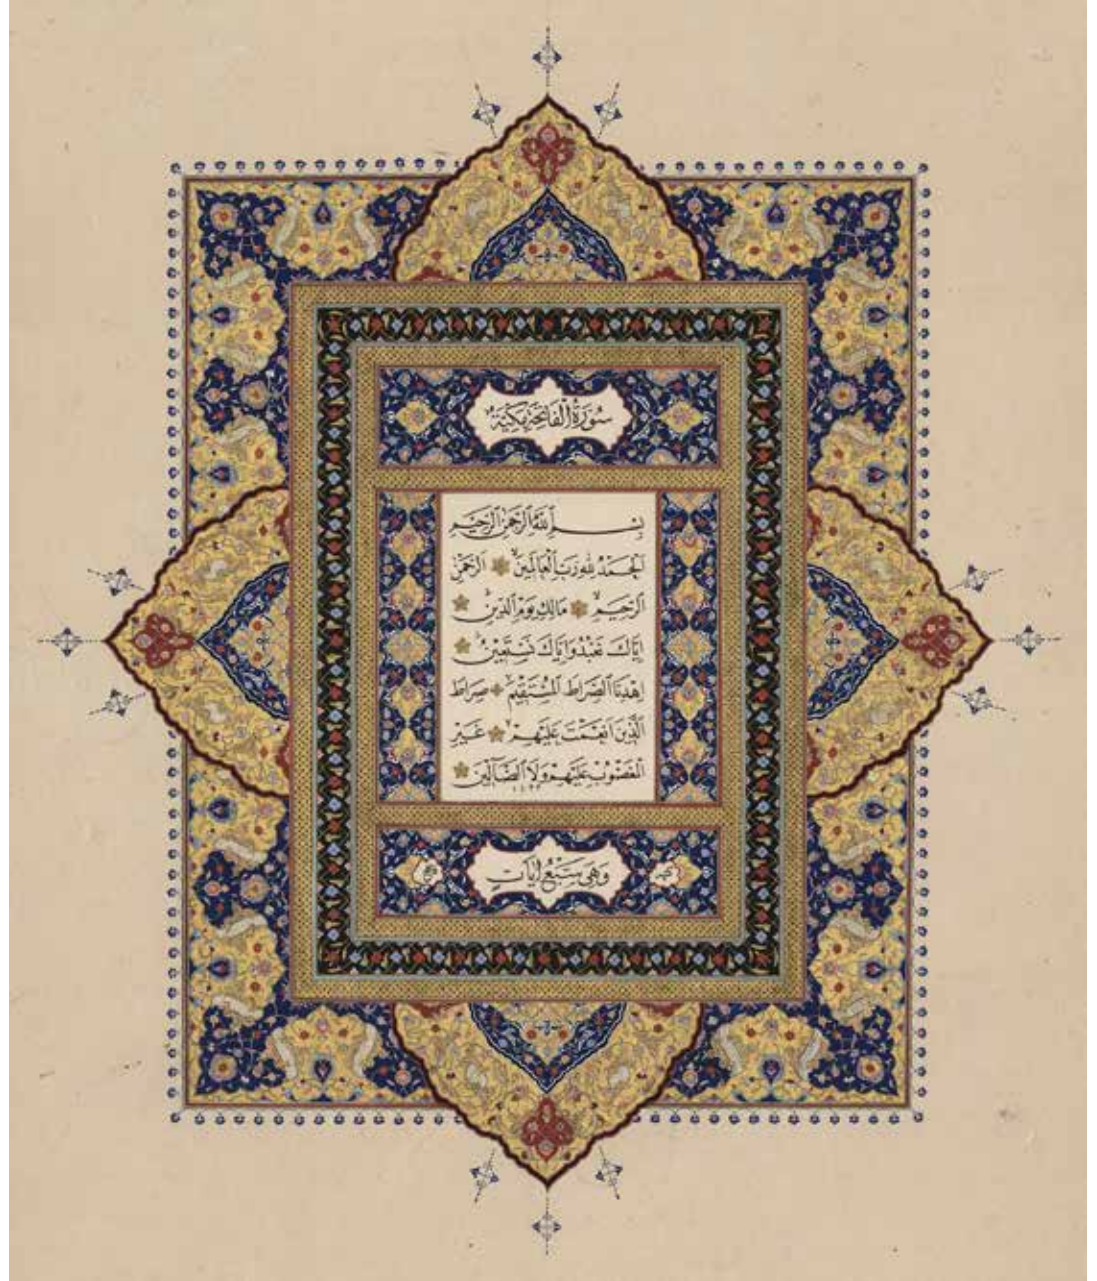 سُورَةُ الْفَاتِحَةِ مَكِّيَّةٌ
بِسْمِ اللّٰهِ الرَّحْمٰنِ الرَّحِيمِ
اَلْحَمْدُ لِلّٰهِ رَبِّ الْعَالَمِينَ اَلرَّحْمٰنِ
الرَّحِيمِ مَالِكِ يَوْمِ الدِّينِ
اِيَّاكَ نَعْبُدُ وَاِيَّاكَ نَسْتَعِينُ
اِهْدِنَا الصِّرَاطَ الْمُسْتَقِيمَ صِرَاطَ
الَّذِينَ اَنْعَمْتَ عَلَيْهِمْ غَيْرِ
الْمَغْضُوبِ عَلَيْهِمْ وَلَا الضَّٓالِّينَ
وَهِيَ سَبْعُ اٰيَاتٍ